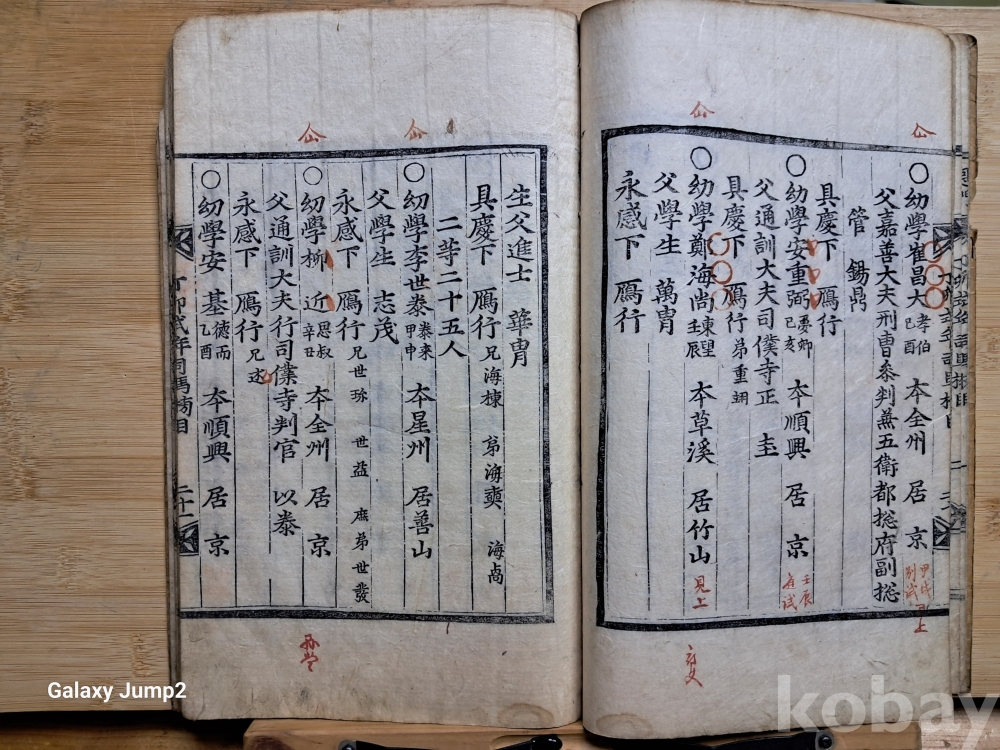 ○幼學崔昌大 孝伯 己酉 本全州 居京
父嘉善大夫刑曹參判兼五衛都摠府副摠
管 錫鼎
具慶下 鴈行
○幼學安重弼 夢卿 己亥 本順興 居京
父通訓大夫司僕寺正 圭
具慶下 鴈行 弟重翊
○幼學鄭海尙 東望 辰 本草溪 居竹山
父學生 萬胄
永感下 鴈行
生父進士 華胄
具慶下 鴈行 兄海棟 弟海奭 海卨
二等二十五人
○幼學李世泰 泰來 甲申 本星州 居善山
父學生 志茂
永感下 鴈行 兄世珎 世益 庶弟世發
○幼學柳近 思叔 辛丑 本全州 居京
父通訓大夫行司僕寺判官 以泰
永感下 鴈行 兄述
○幼學安基 德而 乙酉 本順興 居京
丁卯式年司馬榜目 二十一
見上
壬辰
庭試
甲戌
別試
上
Galaxy Jump2
kobay